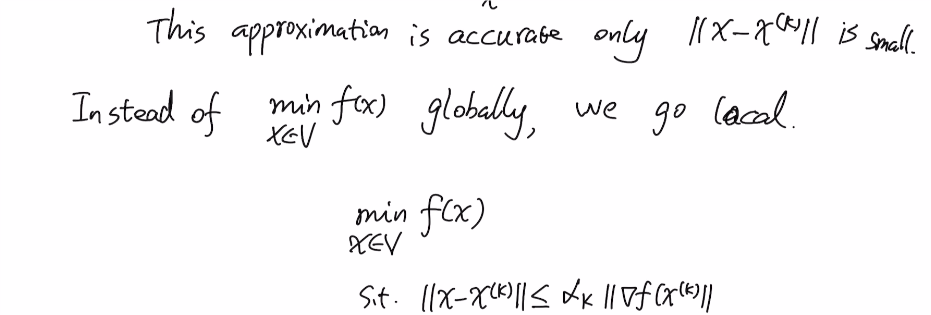 This approximation is accurate only ||x-x^(k)|| is small.
Instead of min f(x) globally, we go local.
x∈V
min f(x)
x∈V
s.t. ||x-x^(k)|| ≤ α_k ||∇f(x^(k)||